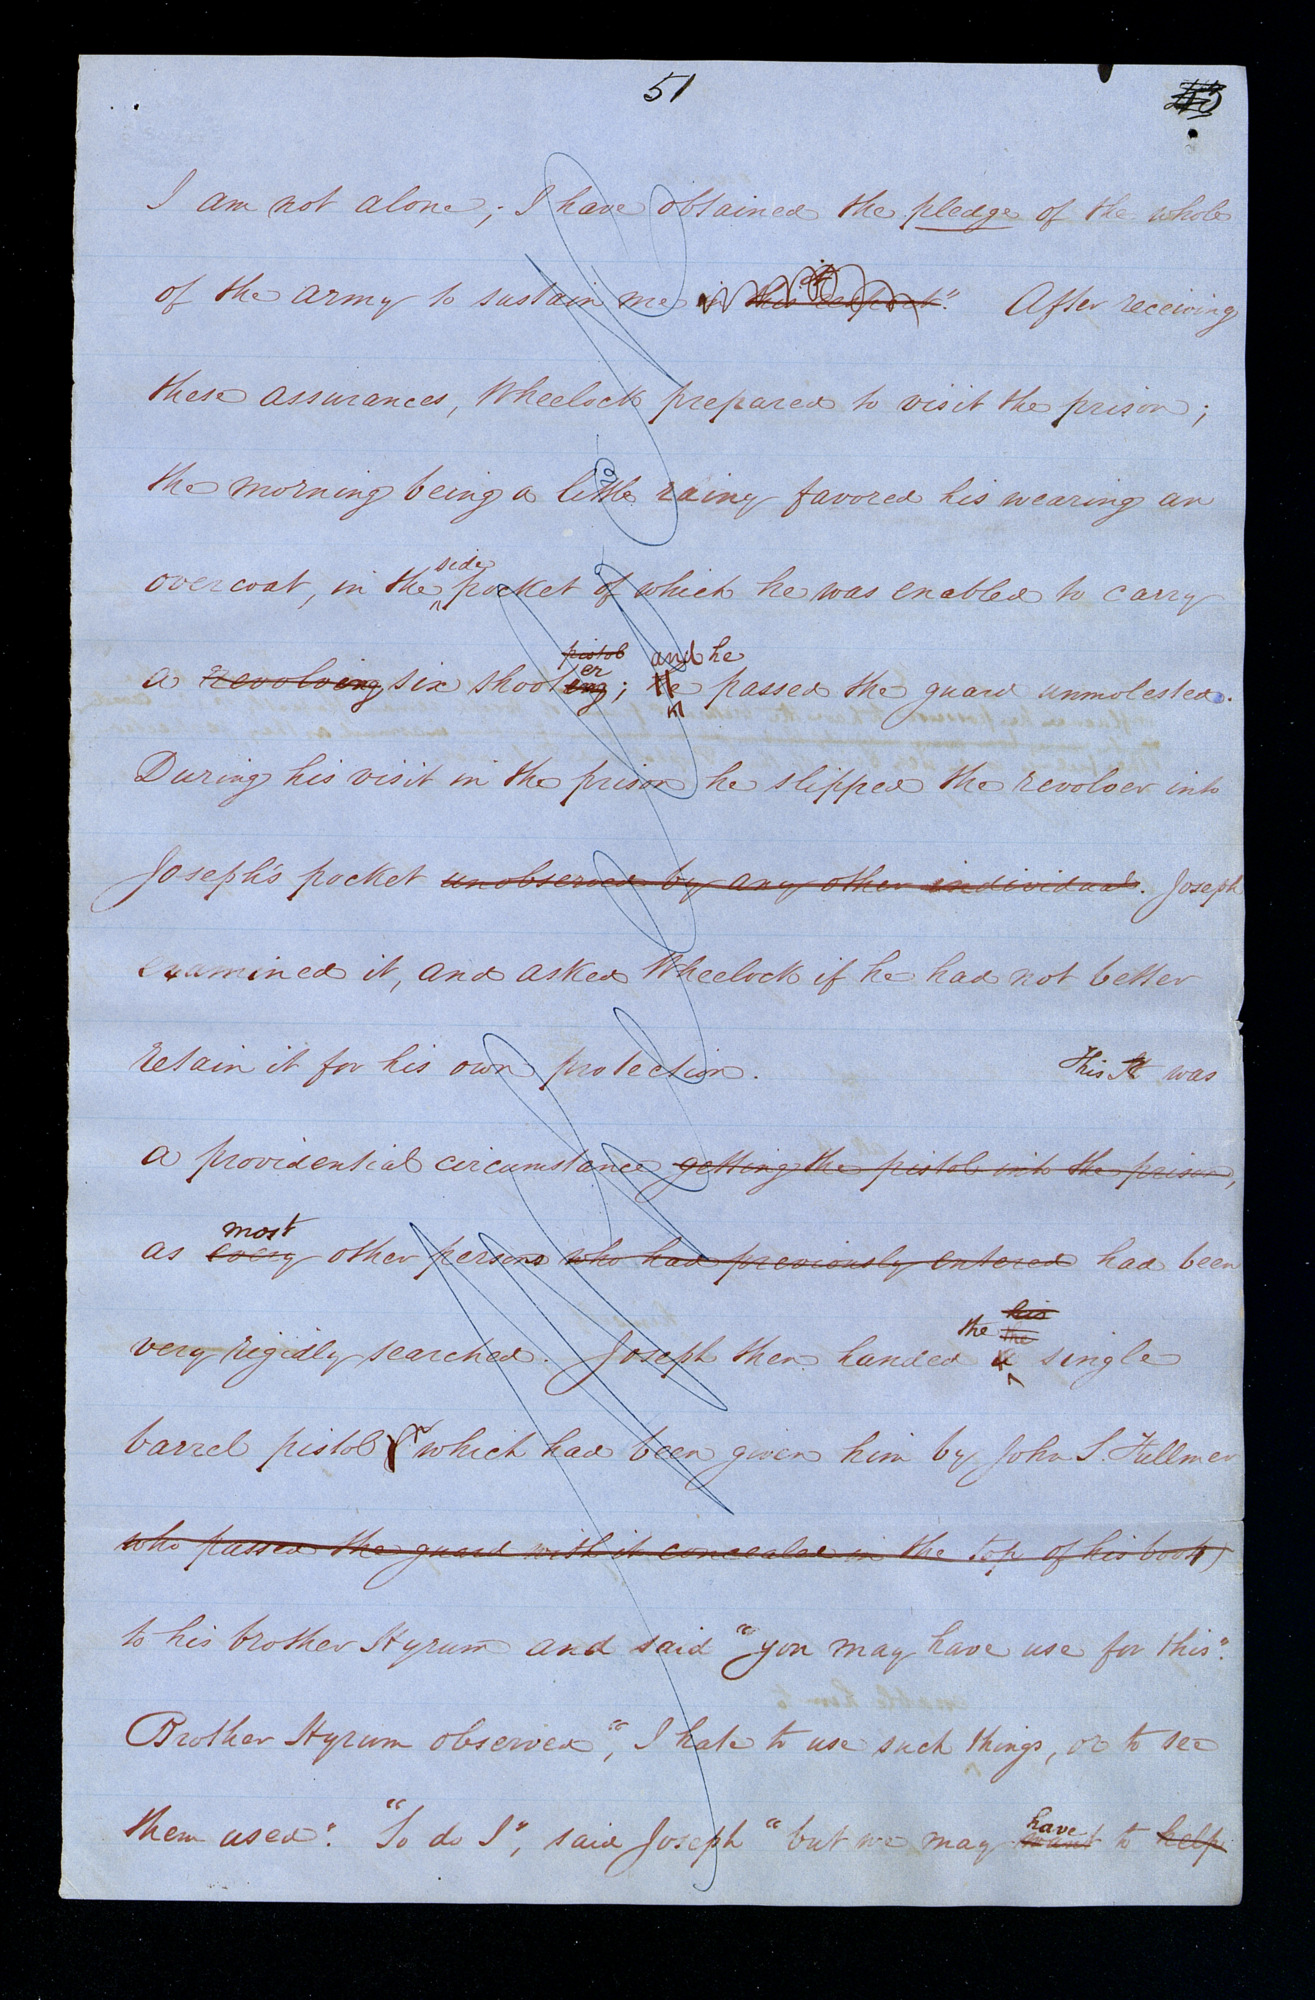 51
I am not alone; I have obtained the pledge of the whole
it
of the army to sustain me in this respect." After receiving
these assurances, Wheelock prepared to visit the prison;
the morning being a little rainy favored his wearing an
side
overcoat, in the pocket of which he was enabled to carry
pistol and he
er
a revolving six shooting; He passed the guard unmolested.
During his visit in the prison he slipped the revolver into
Joseph's pocket unobserved by any other individual. Joseph
examined it, and asked Wheelock if he had not better
retain it for his own protection. This It was
a providential circumstance getting the pistol into the prison,
most
as every other persons who had previously entered had been
his
the the
very rigidly searched. Joseph then handed a single
barrel pistol (which had been given him by John S. Fullmer
who passed the guard with it concealed in the top of his boot)
to his brother Hyrum and said "you may have use for this".
Brother Hyrum observed, "I hate to use such things, or to see
them used". "So do I", said Joseph "but we may
have
want to help